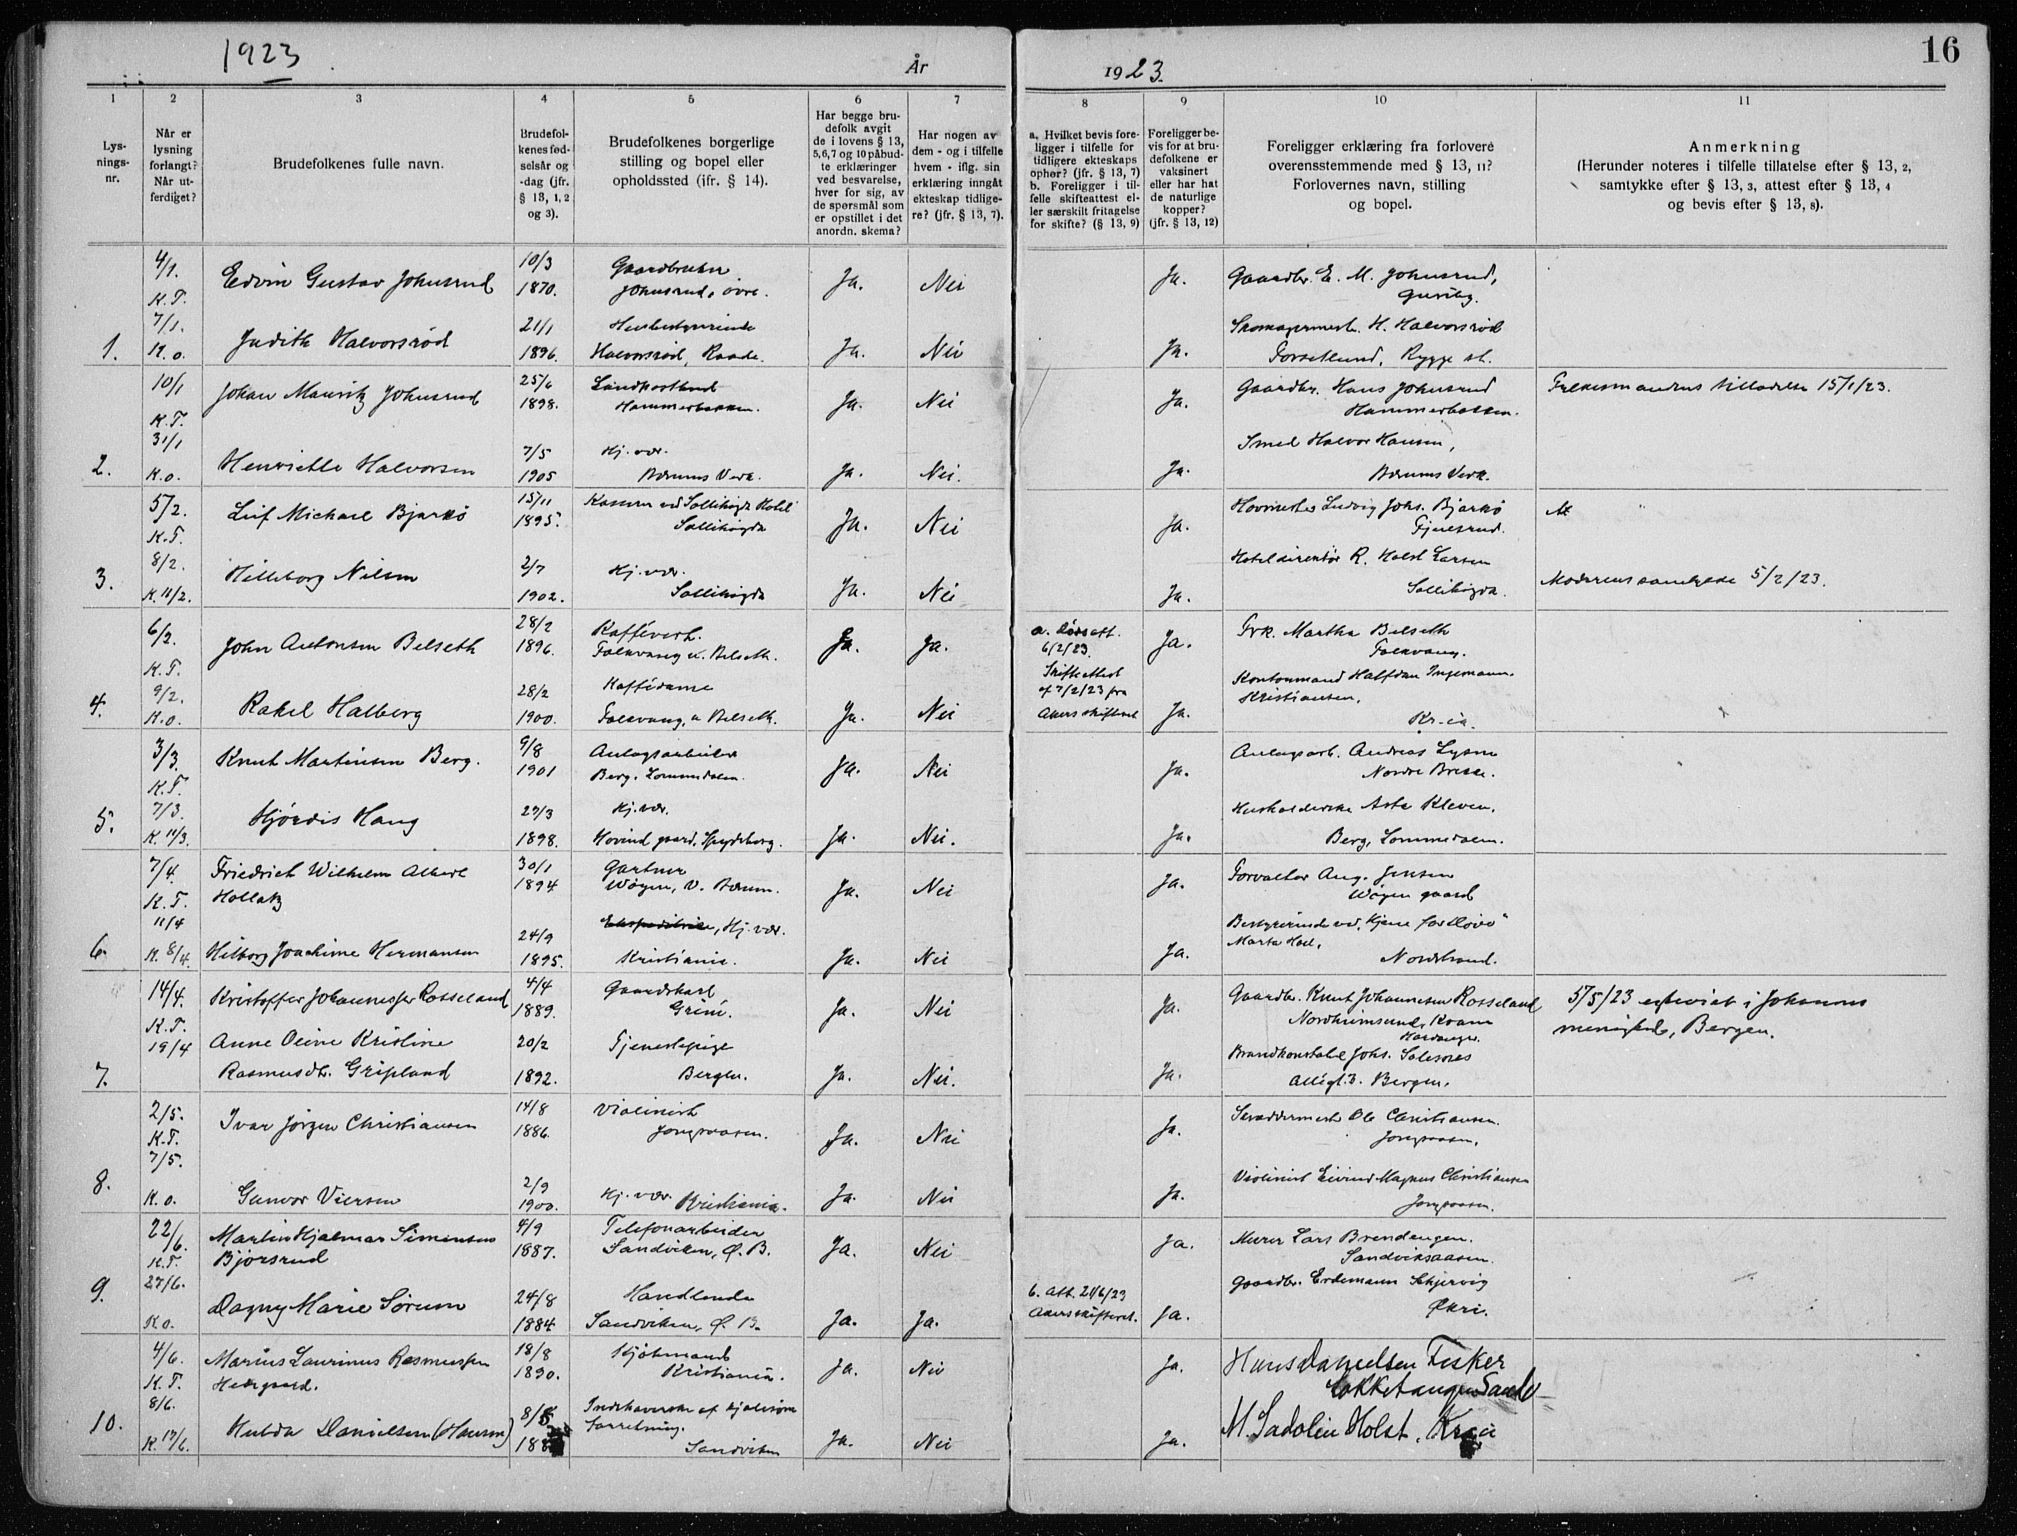 1923
År
1923.
16
1
2
3
4
5
6
7
8
9
10
11
Lys-
nings-
nr.
Når er
lysning
forlangt?
Når ut-
ferdiget?
Brudefolkenes fulle navn.
Brudefol-
kenes fød-
selsår og
-dag (jfr.
§ 13, 1, 2
og 3).
Brudefolkenes borgerlige
stilling og bopel eller
opholdssted (ifr. § 14).
Har begge bru-
defolk avgit
de i lovens § 13,
5,6,7 og 10 påbud-
te erklæringer
ved besvarelse,
hver for sig, av
de spørsmål som
er opstillet i det
anordn. skema?
Har nogen av
dem - og i tilfelle
hvem - iflg. sin
erklæring inngåt
ekteskap tidlige-
re? (jfr. § 13, 7).
a. Hvilket bevis fore-
ligger i tilfelle for
tidligere ekteskaps
ophør? (jfr. § 13, 7)
b. Foreligger i til-
felle skifteattest el-
ler særskilt fritagelse
for skifte? (§ 13, 9)
Foreligger be-
vis for at bru-
defolkene er
vaksinert
eller har hat
de naturlige
kopper?
(jfr. § 13, 12)
Foreligger erklæring fra forlovere
overensstemmende med § 13, 11?
Forlovernes navn, stilling
og bopel.
Anmerkning
(Herunder noteres i tilfelle tillatelse efter § 13, 2,
samtykke efter § 13, 3, attest efter § 13, 4
og bevis efter § 13, 8).
4/1.
K.T.
Edvin Gustav Johnsrud
10/3
1870.
Gaardbruker
Johnsrud, øvre.
Ja.
Nei
Ja.
Gaardbr. E. M. Johnsrud,
1.
7/1.
K.o.
Judith Halvorsrød
21/1
1896.
Husbestyrerinde
Halvorsrød, Raade.
Ja.
Nei
Ja.
Skomagermest. H. Halvorsrød
Forsetlund, Rygge st.
10/1
K.T.
Johan Mauritz Johnsrud
25/6
1898.
Hammerbakken.
Ja.
Nei
Ja.
Gaardbr. Hans Johnsrud
Hammerbakken.
Fylkesmandens tilladelse 15/1/23.
2.
31/1
K.o.
Henriette Halvorsen
7/5
1905
Hj. vær.
Bærums Verk.
Ja.
Nei.
Ja.
Smed Halvor Hansen,
Bærums Verk.
5/2.
K.T.
Leif Michael Bjarkø
15/11
1895.
Kasserer ved Sollihøgda Hotel
Sollihøgda
Ja.
Nei
Ja.
Hovmester Ludvig Johs. Bjarkø
3.
8/2.
K. 11/2.
Hilleborg Nilsen
2/7
1902.
Hj. vær.
Sollihøgda
Ja.
Nei
Ja.
Hoteldirektør R. Holst Larsen
Sollihøgda.
Moderens samtykke 5/2/23.
6/2.
K.T.
John Antonsen Belseth
28/2
1896.
Kaffévert.
Folkvang v. Belseth.
Ja.
Ja.
a. Dødsatt.
6/2/23.
Ja.
Frk. Martha Belseth
Folkvang.
4.
9/2.
K.o.
Rakel Halberg
28/2
1900.
Kaffédame
Folkvang, v Belseth.
Ja.
Nei
Skifteattest
af 7/2/23 fra
Akers skifteret
Ja.
Kontormand Halfdan Ingemann.
Kristiansen,
Kr-ia.
3/3.
K.T.
Knut Martinsen Berg.
9/8
1901
Anlægsarbeider
Berg, Lommedalen.
Ja.
Nei
Ja.
Anlægsarb. Andreas Lysen
Nordre Brekke.
5.
7/3.
K. 11/3.
Hjørdis Haug
27/3
1898.
Hj. vær.
Hovind gaard, Spydeberg.
Ja.
Nei.
Ja.
Husholderske Asta Kleven,
Berg, Lommedalen.
7/4.
K.T.
Friedrich Wilhelm Albert
Hollatz
30/1
1894
Gartner
Wøyen, V. Bærum.
Ja.
Nei
Ja.
Forvalter Aug. Jensen
Wøyen gaard
6.
11/4
K. 8/4.
Hilborg Joachime Hermansen
24/9
1895.
Ekspeditrice, Hj. vær.
Kristiania.
Ja.
Nei
Ja.
Bestyrerinde ved „Hjem for Døve"
Marta Hoel,
Nordstrand.
14/4.
K.T.
Kristoffer Johannessen Rosseland
4/4
1889.
Gaardskarl
Grini.
Ja.
Nei
Ja.
Gaardbr. Knut Johannesen Rosseland
Nordheimsund, Kvam
Hardanger.
5/5/23 ekteviet i Johannes
menighed, Bergen.
7.
19/4
Anne Oline Kristine
Rasmusdtr. Gripland
20/2
1892.
Tjenestepige
Bergen.
Ja.
Nei.
Ja.
Brandkonstabel Johs. Salesnes
Allégt. 3. Bergen.
2/5.
K.T.
Ivar Jørgen Christiansen
14/8
1886.
Violinist
Jongsaasen.
Ja.
Nei
Ja.
Skræddermester Ole Christiansen.
Jongsaasen,
8.
7/5.
K.o.
Gunvor Viersen
2/9
1900.
Hj. vær. Kristiania.
Ja.
Nei
Ja.
Violinist Eivind Magnus Christiansen
Jongsaasen.
22/6.
K.T.
Martin Hjalmar Simensen
Bjørsrud
4/9
1887.
Telefonarbeider
Sandviken, Ø. B.
Ja.
Nei
Ja.
Murer Lars Brendengen.
Sandviksaasen.
9.
27/6.
K.o.
Dagny Marie Sørum
24/8
1884.
Handlende
Sandviken, Ø. B.
Ja.
Ja.
b. Att. 21/6/23
Akers skifteret.
Ja.
Gaardbr. Erdemann Skjervig
Økri.
4/6.
K.T.
Marius Laurinus Rasmussen
18/8
1890.
Kjøbmand
Kristiania.
Ja.
Nei
Ja.
Hans Danielsen Fisker
10.
8/6.
K. 17/6.
Hulda Danielsen (Hansen)
8/5
188
Indehaverske af kjolesøm
forretning.
Sandviken
Ja.
Nei
Ja.
M. Sadolin Holst, Kr.a